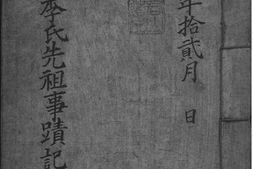 年拾貳月　日
李氏先祖事蹟記